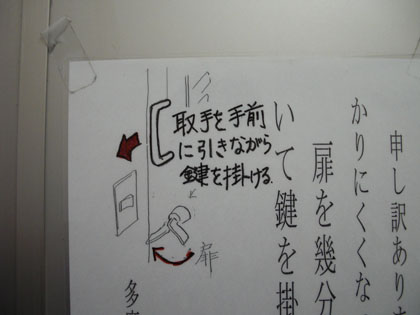 申し訳あり
かりにくくな
扉を幾分
いて鍵を掛
取手を手前
に引きながら
鍵を掛ける.
扉
多